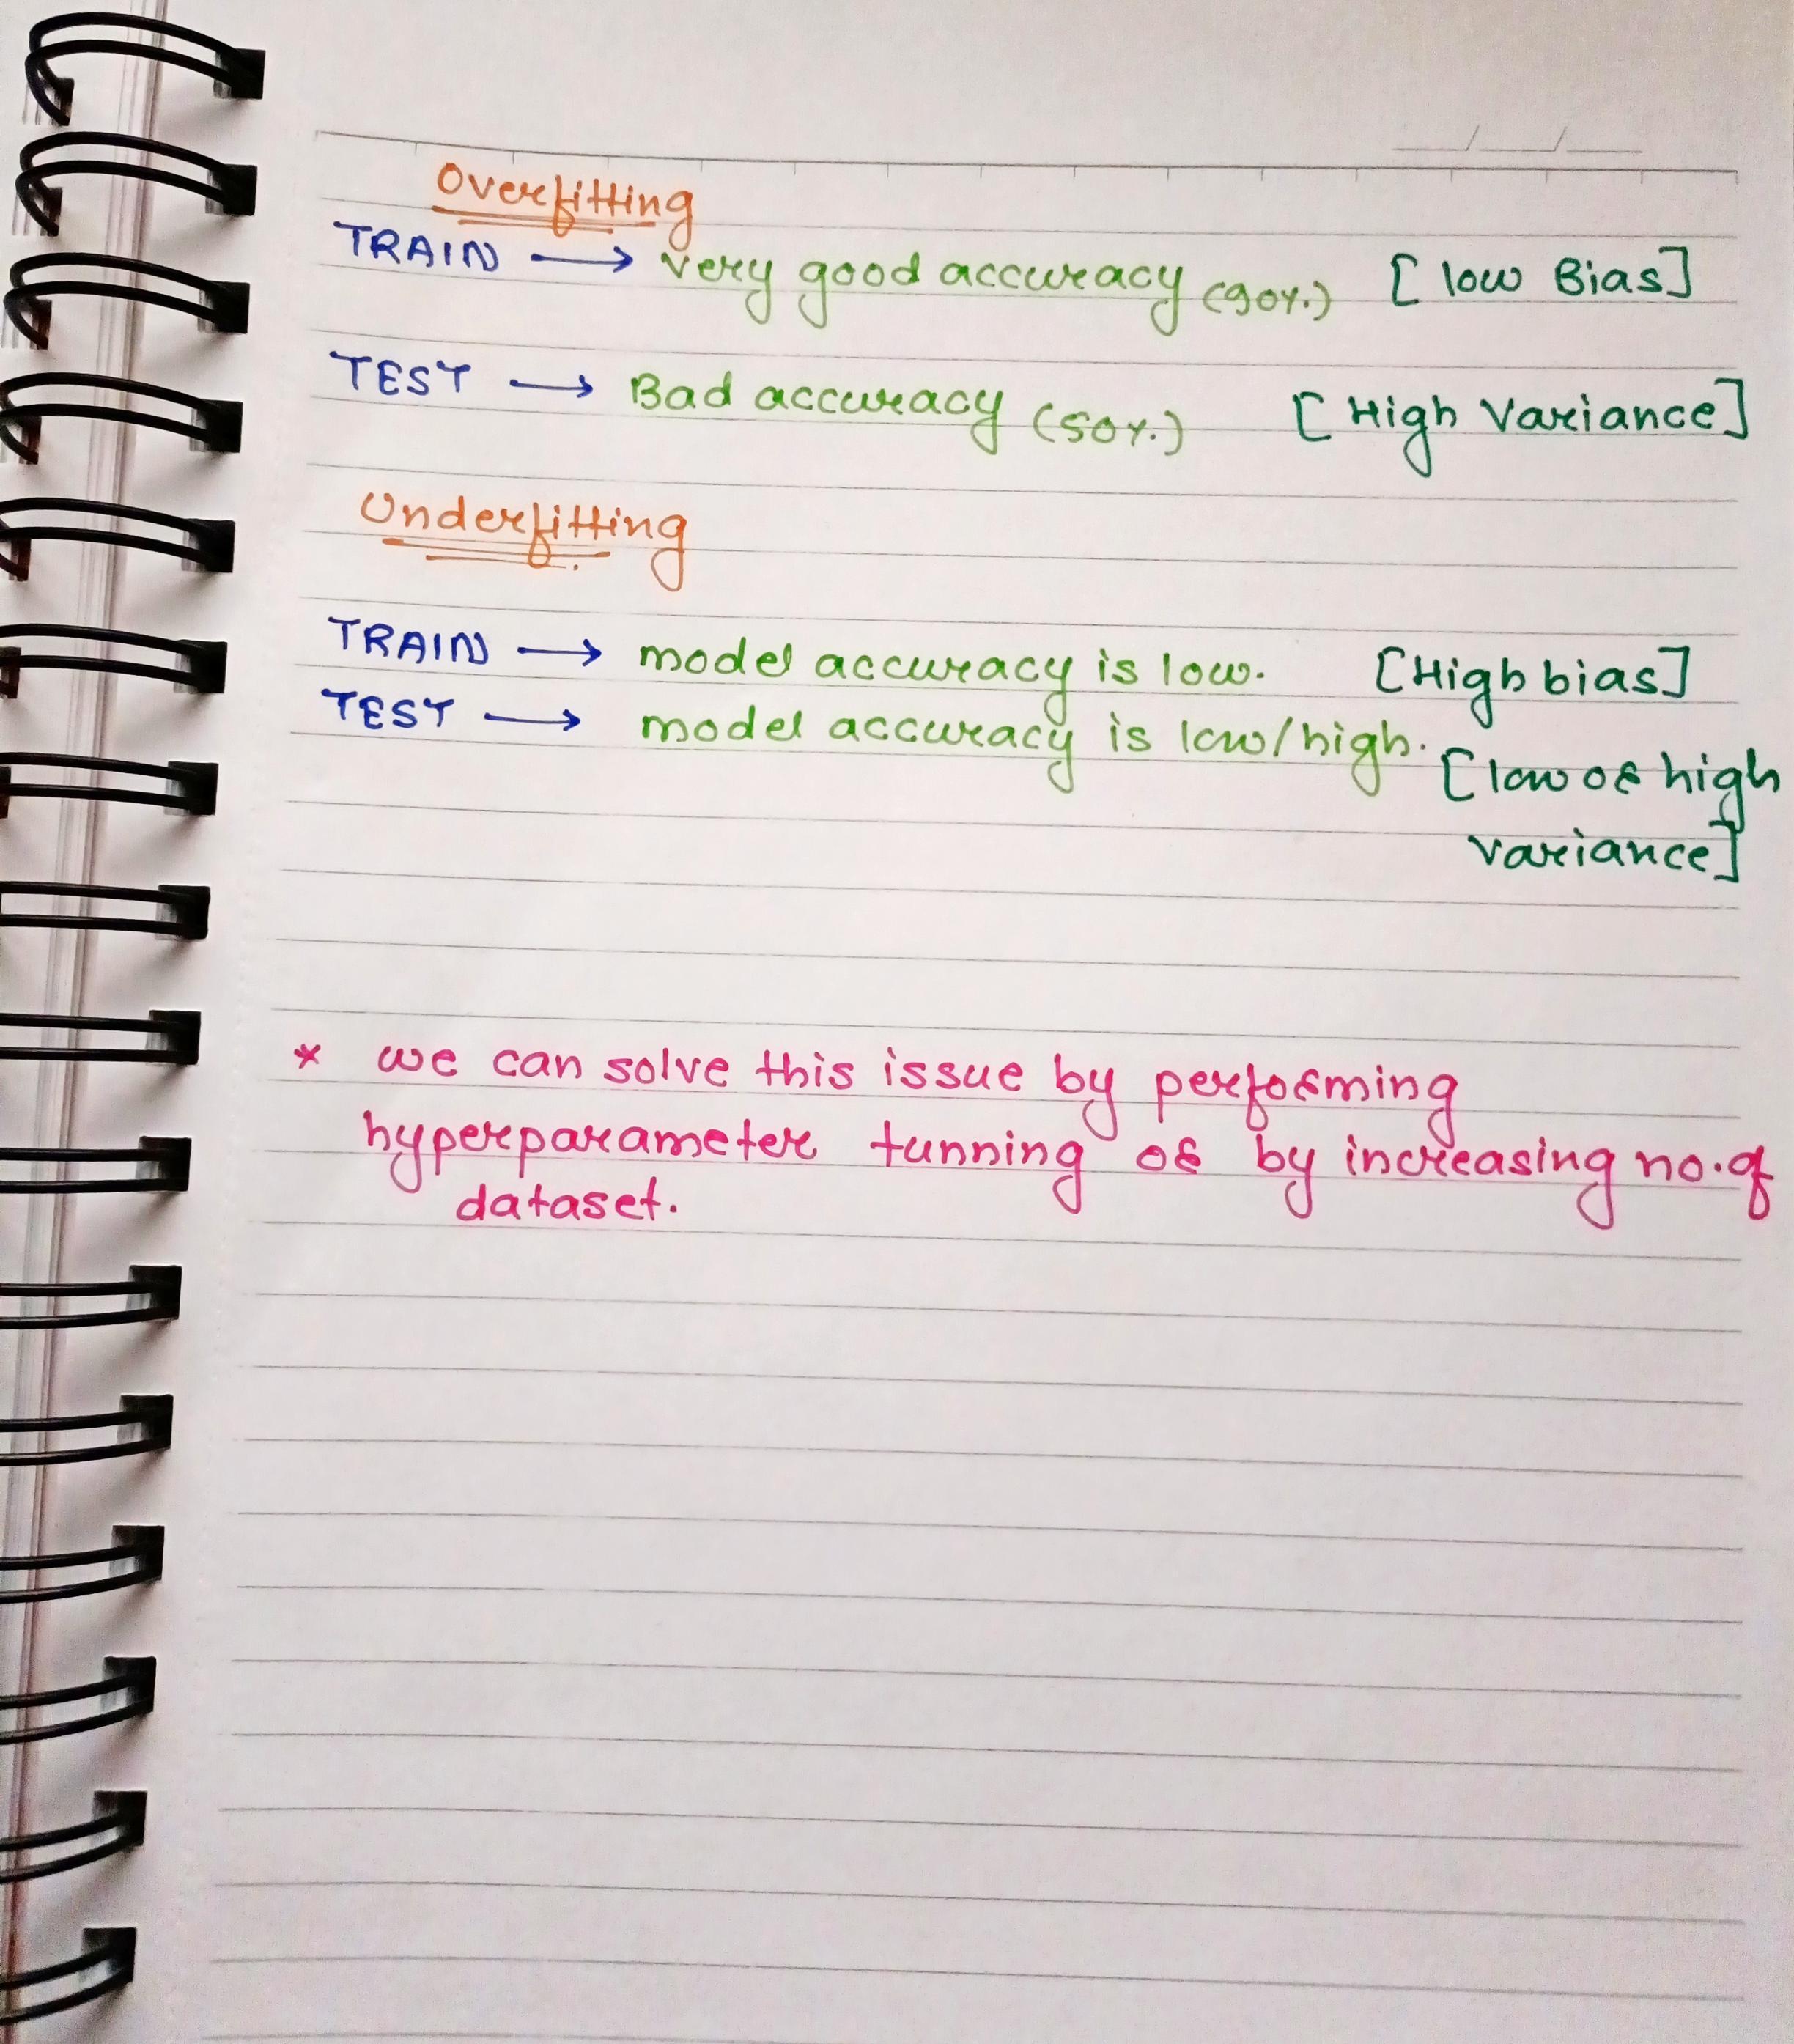 Overfitting
TRAIN → very good accuracy (90%) [low Bias]
TEST → Bad accuracy (50%) [High Variance]
Underfitting
TRAIN → model accuracy is low. [High bias]
TEST → model accuracy is low/high. [low or high
variance]
* we can solve this issue by performing
hyperparameter tunning or by increasing no. of
dataset.